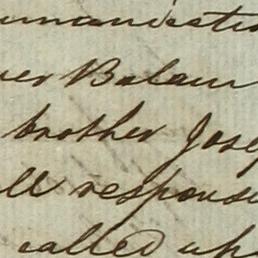 ummunicatio
er Balaam
brother Jose
ll response
called upo